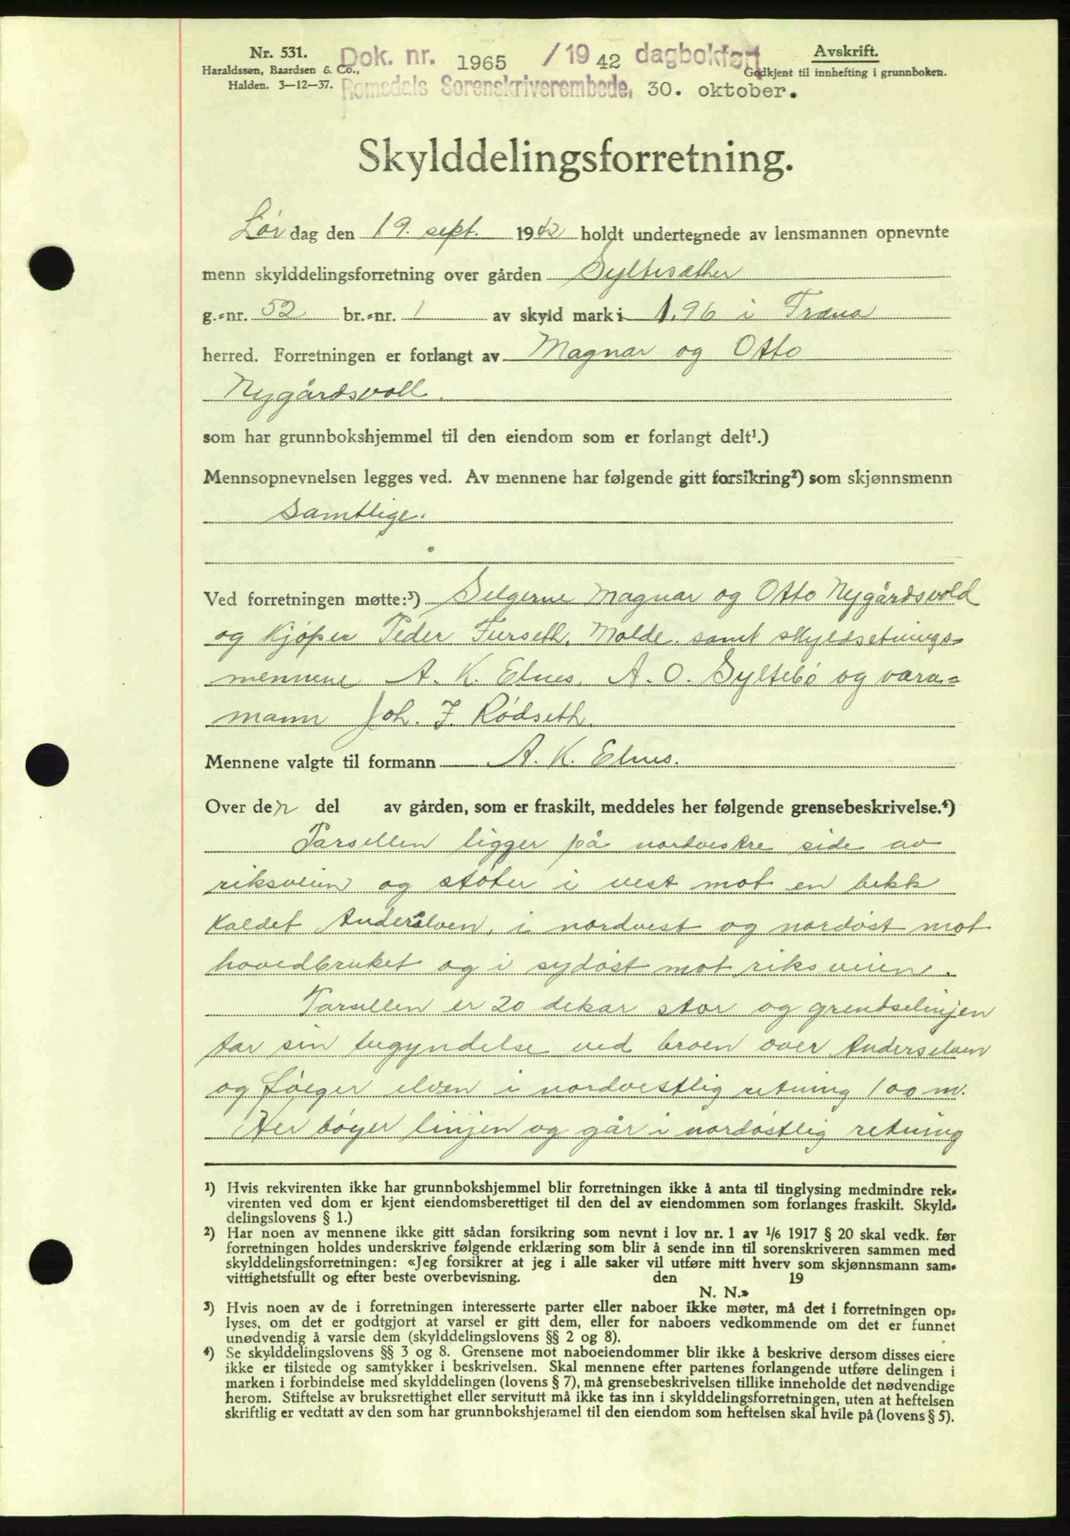 Nr. 531.
Haraldssen, Baardsen & Co.,
Halden. 3—12—37.
Dok. nr. 1965 /1942 dagbokført
Romsdals Sorenskriverembede, 30. oktober.
Avskrift.
Godkjent til innhefting i grunnboken.
Skylddelingsforretning.
Lør dag den 19. sept. 1942 holdt undertegnede av lensmannen opnevnte
menn skylddelingsforretning over gården Syltesæther
g.-nr. 52 br.-nr. 1 av skyld mark i 1.96 i Fræna
herred. Forretningen er forlangt av Magnar og Otto
Nygårdsvoll.
som har grunnbokshjemmel til den eiendom som er forlangt delt¹.)
Mennsopnevnelsen legges ved. Av mennene har følgende gitt forsikring²) som skjønnsmenn
Samtlige.
Ved forretningen møtte:³) Selgerne Magnar og Otto Nygårdsvold
og kjøper Peder Furseth, Molde. samt skyldsetnings-
mennene A. K. Elnes, A. O. Syltebø og vara-
mann Joh. J. Rødseth.
Mennene valgte til formann A. K. Elnes.
Over den del av gården, som er fraskilt, meddeles her følgende grensebeskrivelse.⁴)
Parsellen ligger på nordvestre side av
riksveien og støter i vest mot en bekk
kaldet Anderselven, i nordvest og nordøst mot
hovedbruket og i sydøst mot riksveien.
Parsellen er 20 dekar stor og grendselinjen
tar sin begyndelse ved broen over Anderselven
og følger elven i nordvestlig retning 100 m.
Her bøyer linjen og går i nordøstlig retning
¹) Hvis rekvirenten ikke har grunnbokshjemmel blir forretningen ikke å anta til tinglysing medmindre rek-
virenten ved dom er kjent eiendomsberettiget til den del av eiendommen som forlanges fraskilt. Skyld-
delingslovens § 1.)
²) Har noen av mennene ikke gitt sådan forsikring som nevnt i lov nr. 1 av 1/6 1917 § 20 skal vedk. før
forretningen holdes underskrive følgende erklæring som blir å sende inn til sorenskriveren sammen med
skylddelingsforretningen: «Jeg forsikrer at jeg i alle saker vil utføre mitt hverv som skjønnsmann sam-
vittighetsfullt og efter beste overbevisning. den 19
N. N.»
³) Hvis noen av de i forretningen interesserte parter eller naboer ikke møter, må det i forretningen op-
lyses, om det er godtgjort at varsel er gitt dem, eller for naboers vedkommende om det er funnet
unødvendig å varsle dem (skylddelingslovens §§ 2 og 8).
⁴) Se skylddelingslovens §§ 3 og 8. Grensene mot naboeiendommer blir ikke å beskrive dersom disses eiere
ikke er tilstede og samtykker i beskrivelsen. Skal mennene efter partenes forlangende utføre delingen i
marken i forbindelse med skylddelingen (lovens § 7), må grensebeskrivelsen tillike inneholde det nødvendige
herom. Stiftelse av bruksrettighet eller servitutt må ikke tas inn i skylddelingsforretningen, uten at heftelsen
skriftlig er vedtatt av den som har grunnbokshjemmel til den eiendom som heftelsen skal hvile på (lovens § 5).